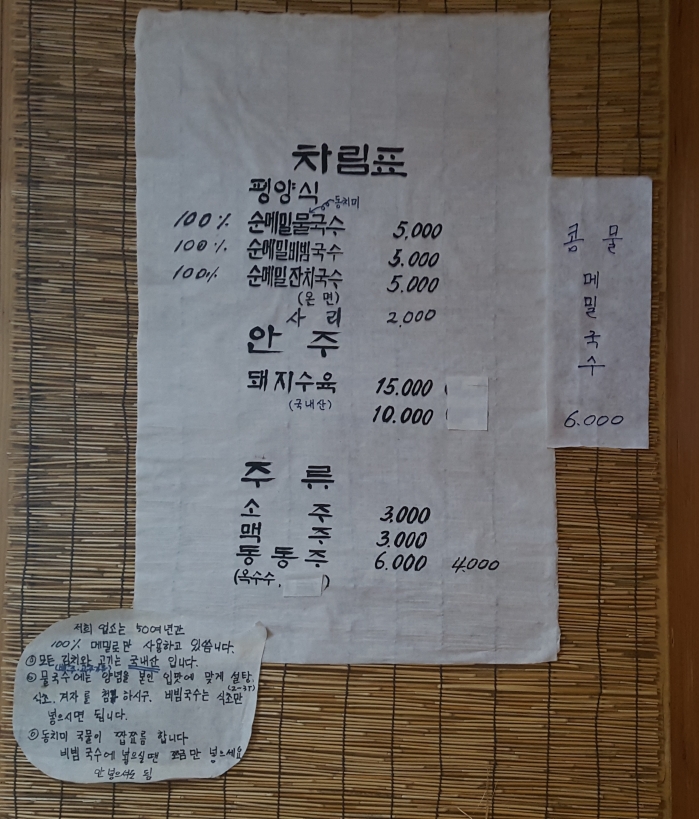 차림표
평양식
동치미
100% 순메밀물국수 5,000
100% 순메밀비빔국수 5.000
100% 순메밀잔치국수 5.000
(온면)
사리 2,000
안주
돼지수육 15.000
(국내산) 10.000
주류
소주 3.000
맥주 3.000
동동주 6.000 4000
(옥수수, )
콩물
메밀국수
6.000
저희 업소는 50여년간
100% 메밀로만 사용하고 있씁니다.
③모든 김치와 고기는 국내산 입니다.
물국수에는 양념을 본인 입맛에 맞게 설탕,
식초, 겨자를 첨 하시구. 비빔국수는 식초만
(2-3T)
넣으시면 됩니다.
동치미 국물이 짭짤름 합니다
비빔국수에 넣으실땐 조금만 넣으세요
안 넣으셔도 됨